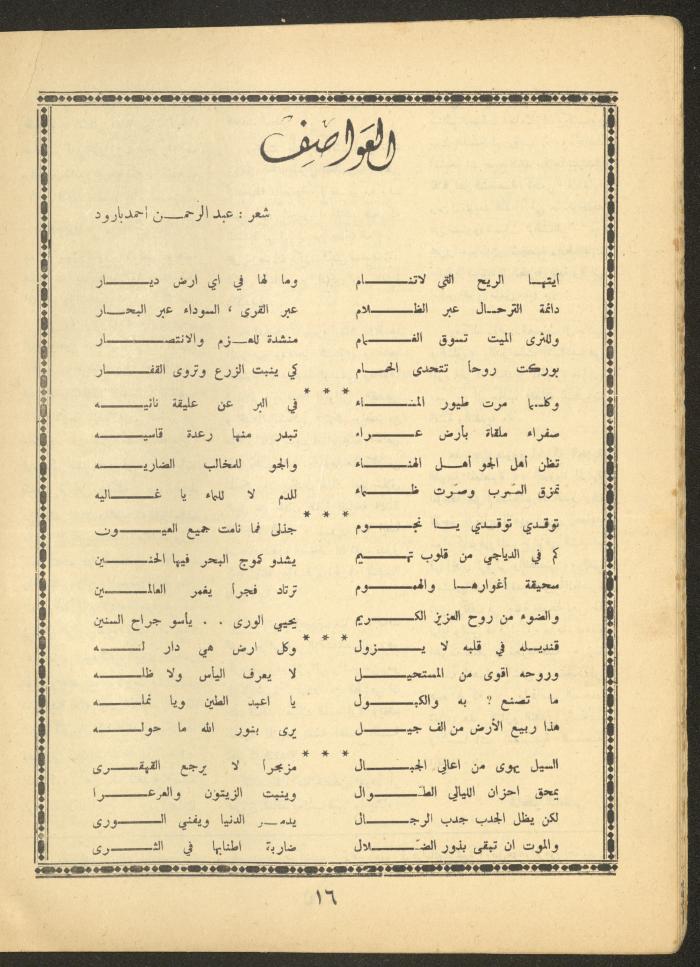 العواصف
شعر : عبد الرحمن احمد بارود
أيتها الريح التي لاتنام وما لها في اي ارض ديار
دائمة الترحال عبر الظلام عبر القرى ، السوداء عبر البحار
وللثرى الميت تسوق الغمام منشدة للعزم والانتصار
بوركت روحاً تتحدى الحمام كي ينبت الزرع وتروى القفار
* * *
وكلما مرت طيور المساء في البر عن عليقة نائيه
صفراء ملقاة بأرض عراء تبدر منها رعدة قاسيه
تظن أهل الجو أهل الهناء والجو للمخالب الضاريه
تمزق السرب وصرت ظماء للدم لا للماء يا غاليه
* * *
توقدي توقدي يا نجوم جذلى فما نامت جميع العيون
كم في الدياجي من قلوب تهيم يشدو كموج البحر فيها الحنين
سحيقة أغوارها والهموم ترتاد فجراً يغمر العالمين
والضوء من روح العزيز الكريم يحيي الورى . . يأسو جراح السنين
* * *
قنديله في قلبه لا يزول وكل ارض هي دار له
وروحه اقوى من المستحيل لا يعرف اليأس ولا ظله
ما تصنع ؟ به والكبول يا اعبد الطين ويا نمله
هذا ربيع الأرض من الف جيل يرى بنور الله ما حوله
* * *
السيل يهوى من اعالي الجبال مزمجراً لا يرجع القهقرى
يمحق احزان الليالي الطوال وينبت الزيتون والعرعرا
لكن يظل الجدب جدب الرجال يدمر الدنيا ويفني الورى
والموت ان تبقى بذور الضلال ضاربة اطنابها في الثرى
١٦